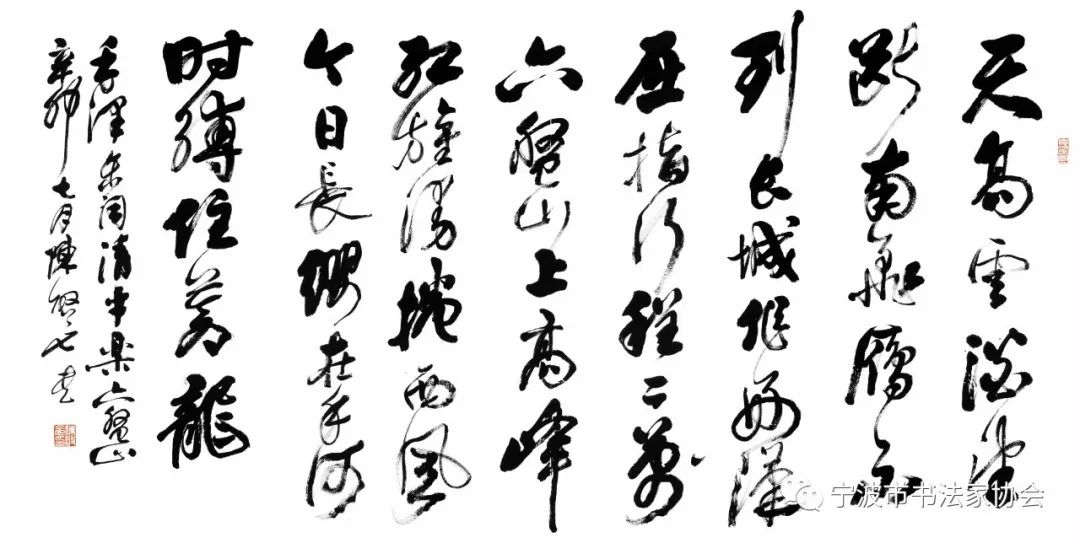 天高雲淡望
断南飛雁不
到长城非好漢
屈指行程二萬
六盤山上高峰
红旗漫捲西風
今日長缨在手何
时缚住蒼龍
毛澤东词清平樂六盤山
辛卯七月陳
宁波市书法家协会